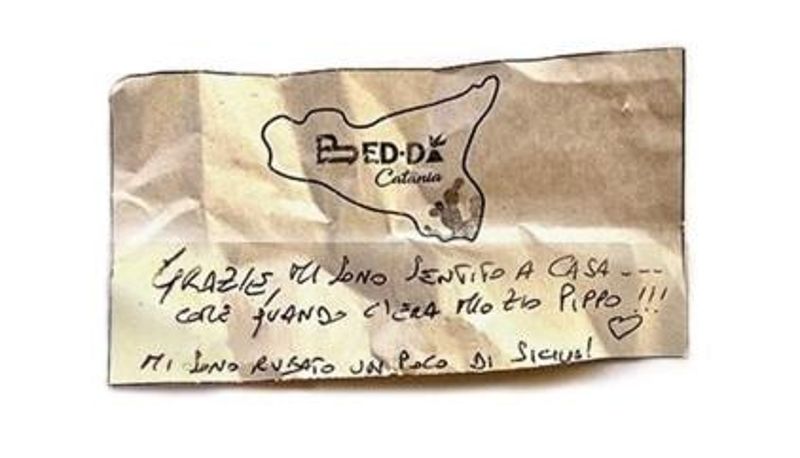 BED·DA
Catania
GRAZIE, MI SONO SENTITO A CASA ---
COME QUANDO C'ERA MIO ZIO PIPPO !!!
MI SONO RUBATO UN POCO DI SICILIA!